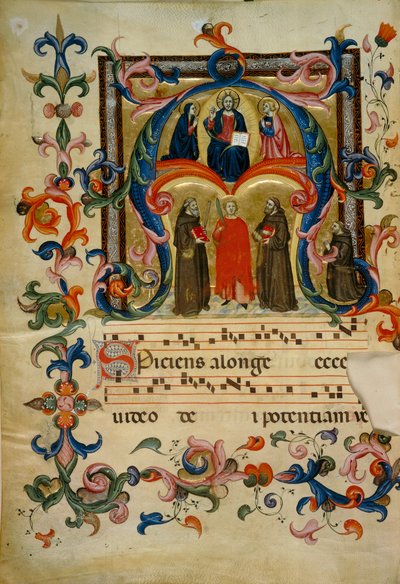 ASpiciens alonge ecce
uideo de i potentiam ve